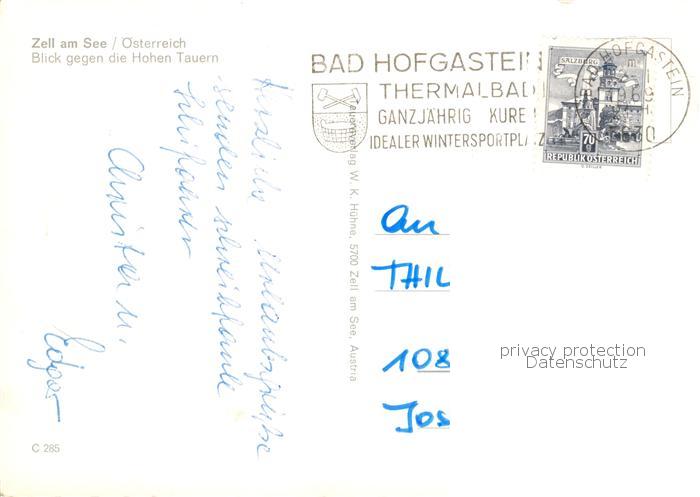 Zell am See / Österreich
Blick gegen die Hohen Tauern
BAD HOFGASTEIN
THERMALBAD
GANZJÄHRIG KURE
IDEALER WINTERSPORTPLATZ
BAD HOFGASTEIN
SALZBURG
70
REPUBLIK ÖSTERREICH
Herzliche Urlaubsgrüße
senden schreibfaule
Schifahrer
Christa u.
Edgar
verlag W. K. Hühne, 5700 Zell am See, Austria
An
THIL
108
Jos
privacy protection
Datenschutz
C 285